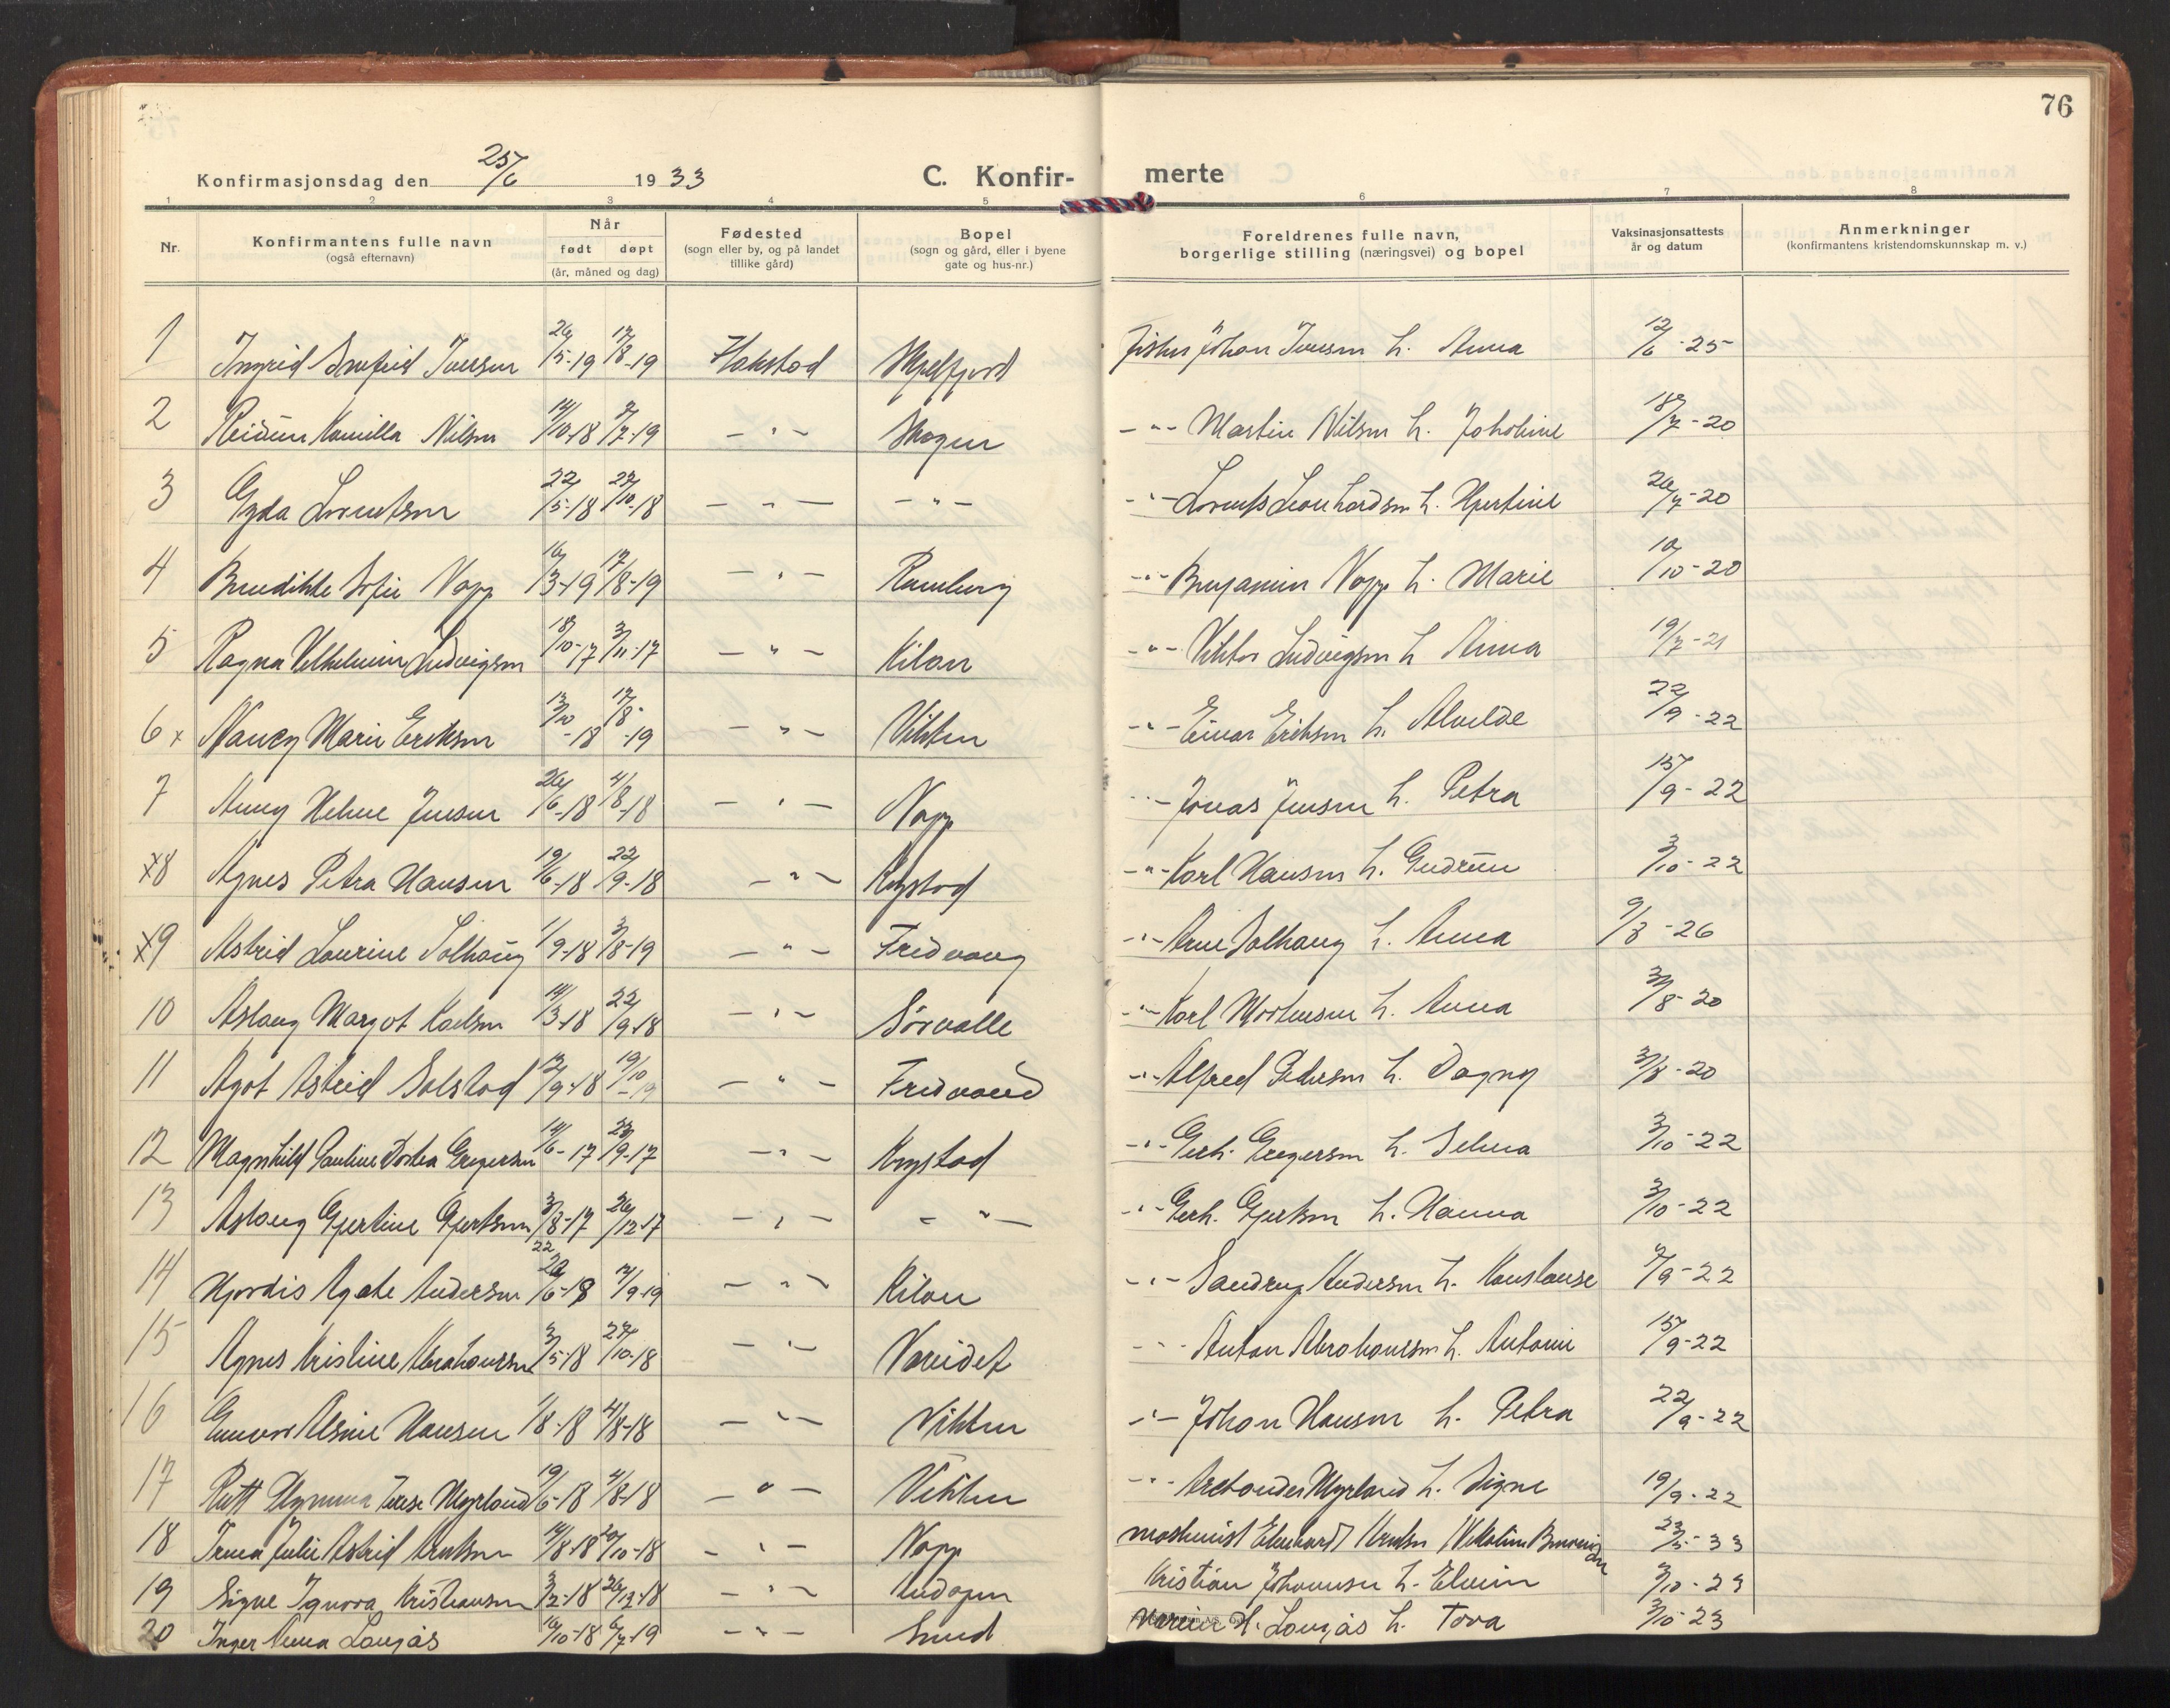 76
Konfirmasjonsdag den 25/6 1933 C. Konfir- merte
1 2 3 4 5 6 7 8
Nr. Konfirmantens fulle navn (også efternavn) Når født døpt (år, måned og dag) Fødested (sogn eller by, og på landet tillike gård) Bopel (sogn og gård, eller i byene gate og hus-nr.) Foreldrenes fulle navn, borgerlige stilling (næringsvei) og bopel Vaksinasjonsattests år og datum Anmerkninger (konfirmantens kristendomskunnskap m. v.)
1 Ingrid Iversen 26/5-19 17/8-19 Hakstad Skjelfjord Fisker Johan Iversen h. Anna 12/6-25
2 Reidun Kamilla Nilsen 14/10-18 2/7-19 - " - Skogen - " - Martin Nilsen h. 18/7-20
3 Gyda Lorentsen 22/5-18 27/10-18 - " - - " - - " - Lorents Leonhardsen h. Hjertine 26/7-20
4 Benedikte Sofie Napp 16/3-19 17/8-19 - " - Ramberg - " - Benjamin Napp h. Marie 10/10-20
5 Ragna Vilhelmine Ludvigsen 18/10-17 3/11-17 - " - Kilan - " - Viktor Ludvigsen h. Anna 19/7-21
6 x Nancy Marie Eriksen 13/10-18 17/8-19 - " - Vikten - " - Einar Eriksen h. Alvilde 22/9-22
7 Anny Helene Jensen 26/6-18 4/8-18 - " - Napp - " - Jonas Jensen h. Petra 15/9-22
x8 Agnes Petra Hansen 19/6-18 22/9-18 - " - Krystad - " - Karl Hansen h. Gudrun 3/10-22
x9 Astrid Laurine Solhaug 1/9-18 3/8-19 - " - Fredvang - " - Arne Solhaug h. Anna 9/3-26
10 Aslaug Margot Karlsen 14/3-18 22/9-18 - " - Sørvalle - " - Karl Mortensen h. Anna 3/8-20
11 Agot Astrid Solstad 12/9-18 19/10-19 - " - Fredvang - " - Alfred Pedersen h. Dagny 3/8-20
12 Magnhild Pauline Gregersen 14/6-17 23/9-17 - " - Krystad - " - Gerh. Gregersen h. Selma 3/10-22
13 Aslaug Gjertine Gjertsen 3/8-17 26/12-17 - " - - " - - " - Gerh. Gjertsen h. Hanna 3/10-22
14 Hjørdis Agate Andersen 22/6-18 14/9-19 - " - Kilan - " - Sandrup Andersen h. Konstanse 7/9-22
15 Agnes Kristine Abrahamsen 3/5-18 27/10-18 - " - Vareidet - " - Anton Abrahamsen h. Antonie 15/9-22
16 Gunvor Alsine Hansen 1/8-18 4/8-18 - " - Vikten - " - Johan Hansen h. Petra 22/9-22
17 Rutt Myrland 19/6-18 4/8-18 - " - Vikten - " - Myrland h. Signe 19/9-22
18 Irma Julie Astrid Arntsen 14/8-18 20/10-18 - " - Napp maskinist Arntsen 23/5-33
19 Signe Ignora Kristiansen 3/2-18 26/12-18 - " - Andopen Kristian Johansen h. Elvine 3/10-23
20 Inger Anna Langås 16/10-18 6/7-19 - " - Sund H. Langås h. Tova 3/10-23